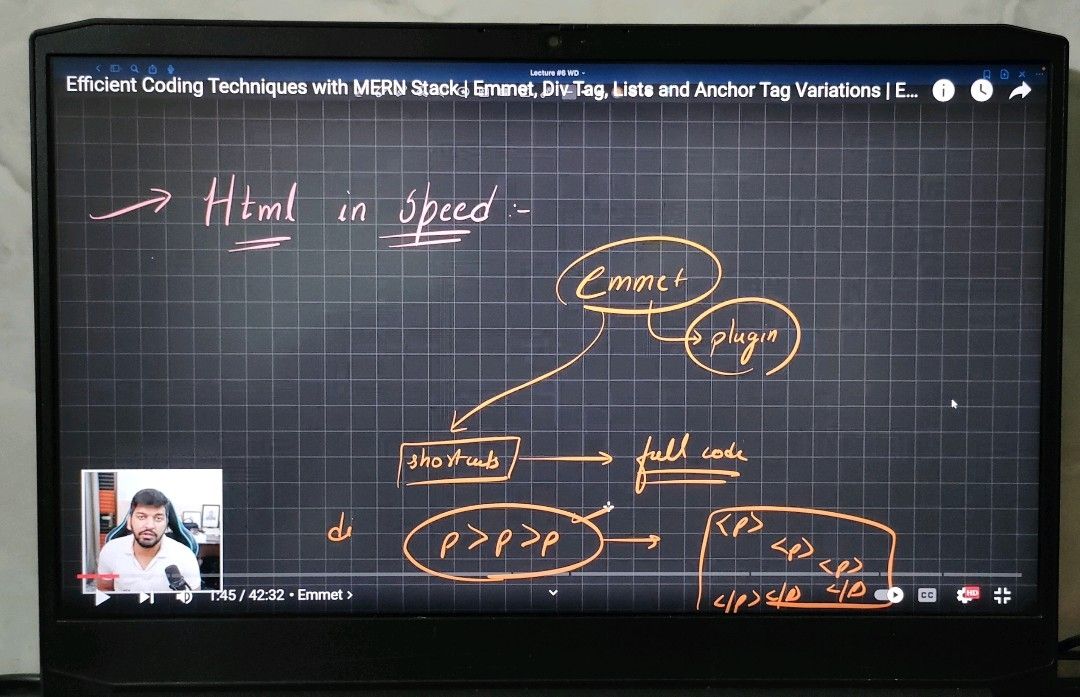 Lecture #6 WD
Efficient Coding Techniques with MERN Stack | Emmet, Div Tag, Lists and Anchor Tag Variations | E...
Html in speed :-
emmet
plugin
shortcuts
full code
di
p>p>p
<p>
<p>
<p>
</p> </p> </p>
1:45 / 42:32 • Emmet >
CC
HD